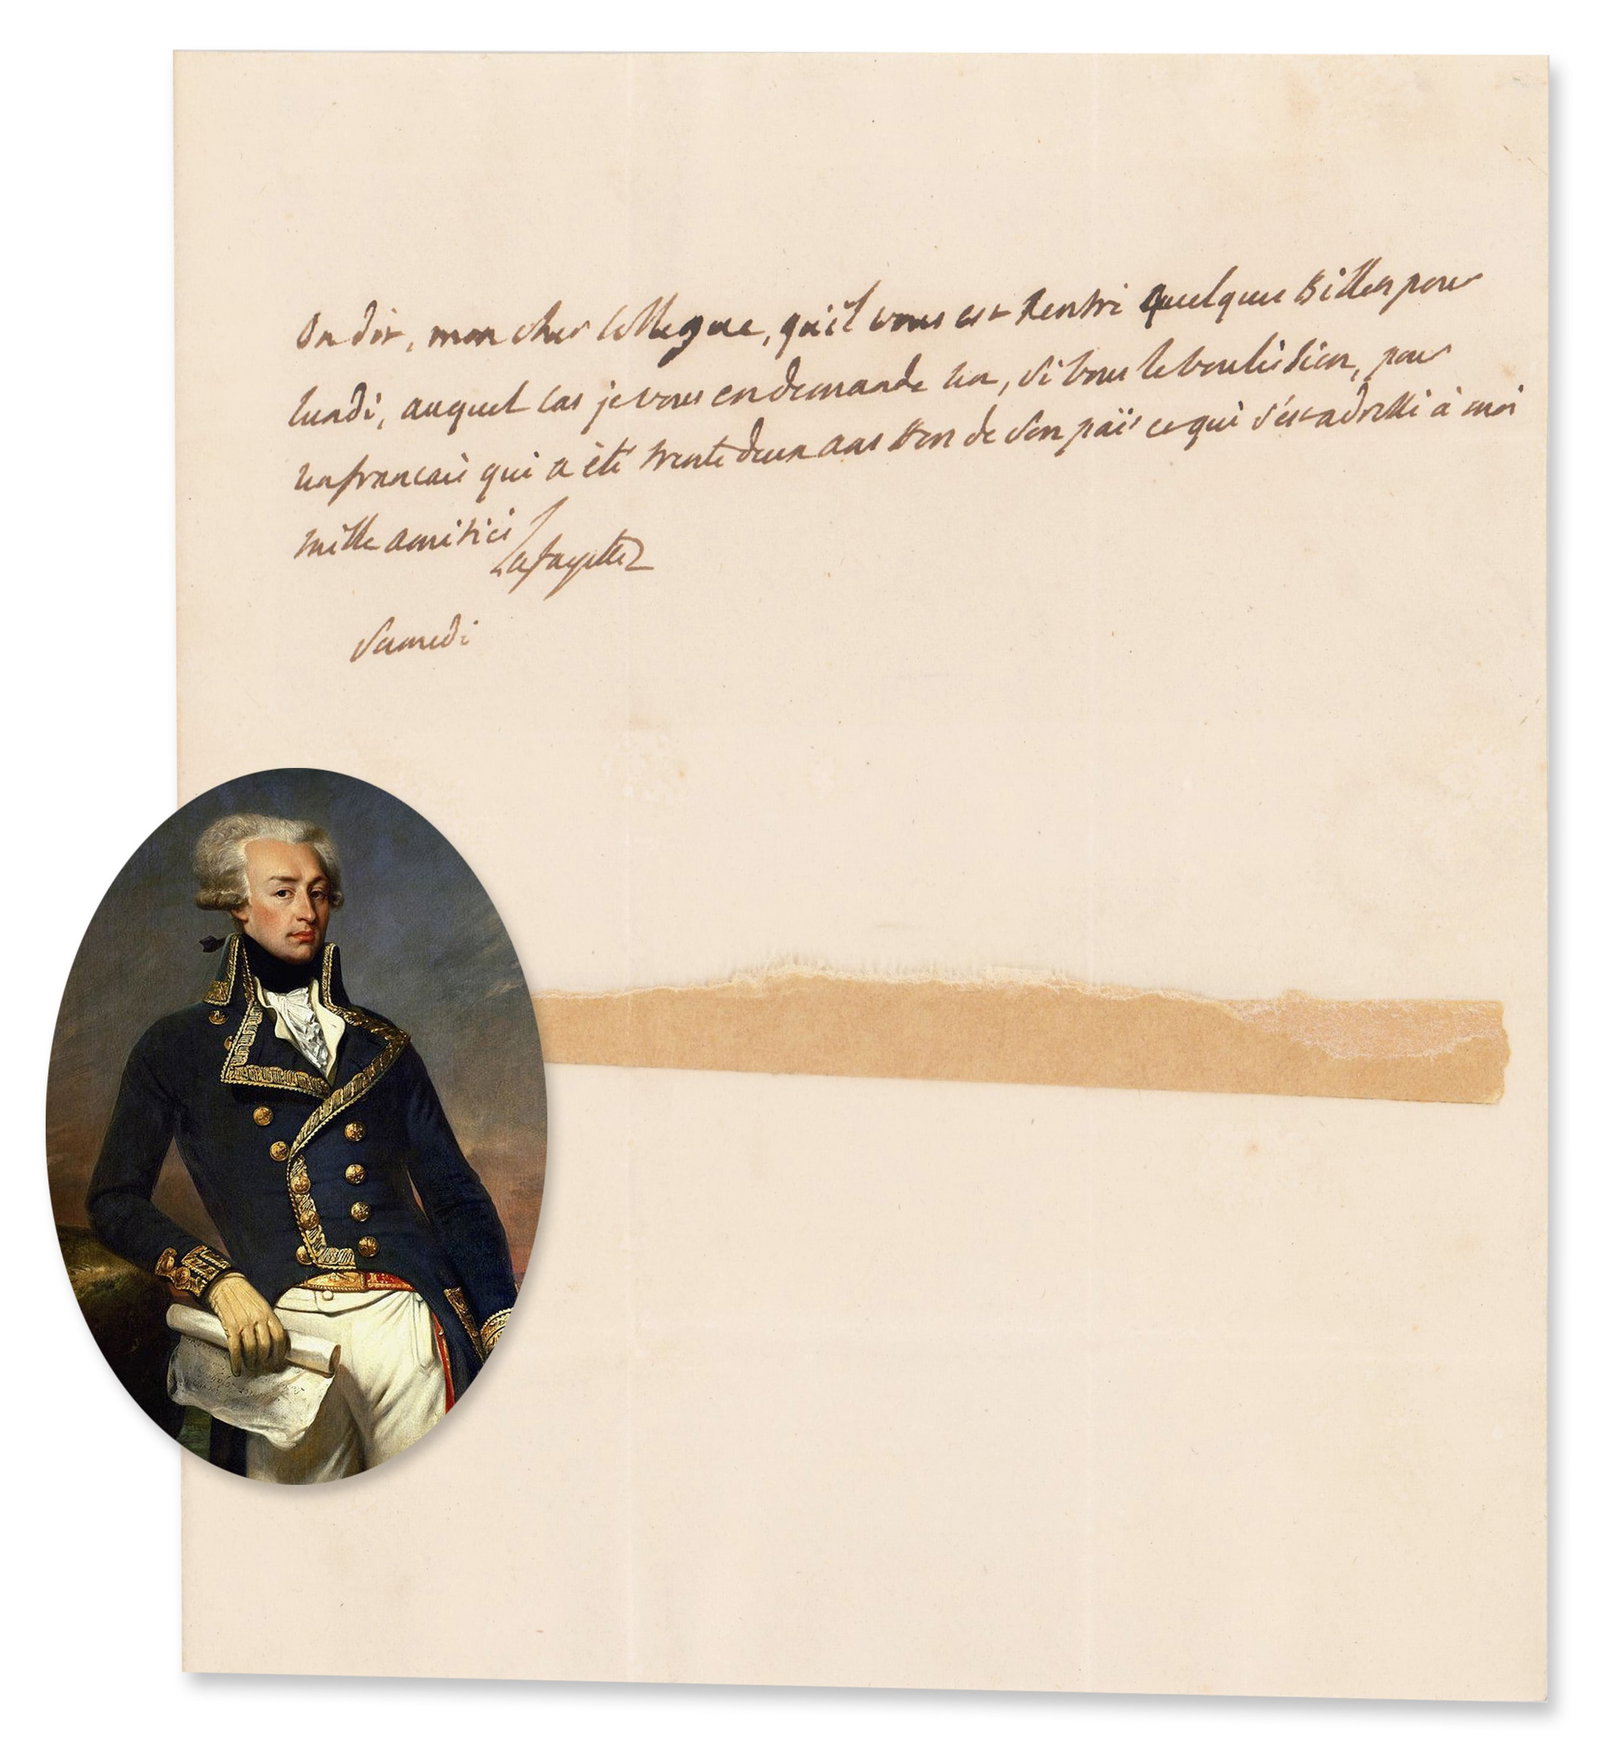 On dit, mon cher Collegue, qu'il vous est Rentré quelques Billets pour
lundi, auquel cas je vous en demande un, si vous le voulés bien, pour
un francais qui a été trente deux ans hors de son païs et qui s'est adressé à moi
mille amitiés
Lafayette
Samedi